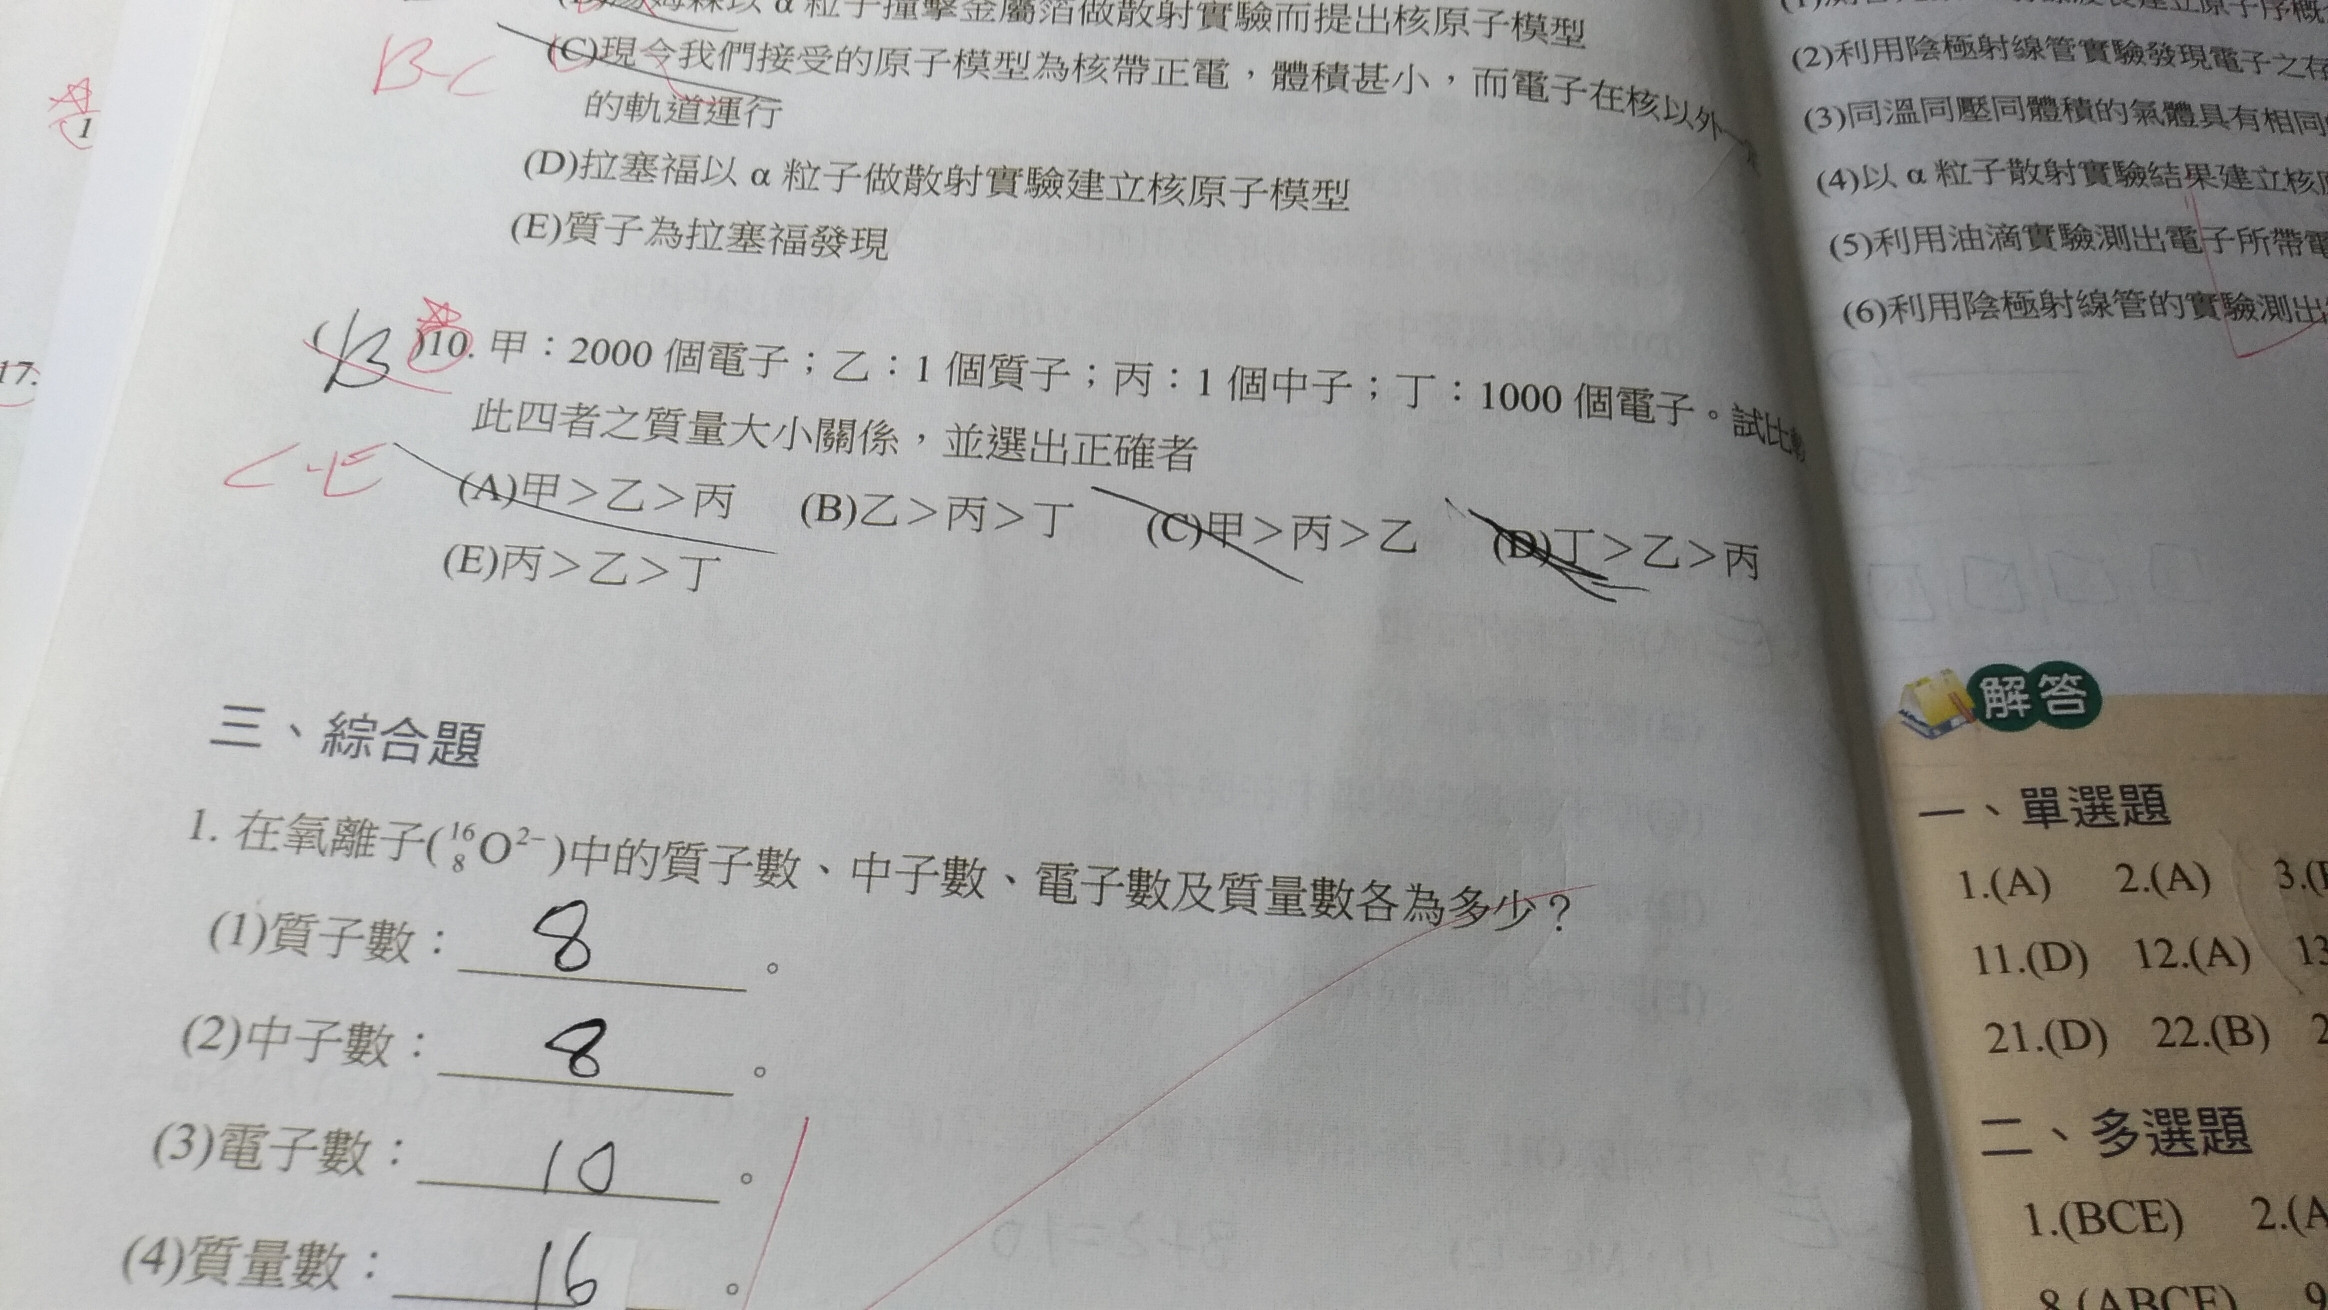 粒子撞擊金屬箔做散射實驗而提出核原子模型
B C
(C)現今我們接受的原子模型為核帶正電，體積甚小，而電子在核以外
的軌道運行
(D)拉塞福以 α 粒子做散射實驗建立核原子模型
(E)質子為拉塞福發現
(B)10. 甲：2000 個電子；乙：1 個質子；丙：1 個中子；丁：1000 個電子。試比較
此四者之質量大小關係，並選出正確者
C E
(A)甲＞乙＞丙 (B)乙＞丙＞丁 (C)甲＞丙＞乙 (D)丁＞乙＞丙
(E)丙＞乙＞丁
三、綜合題
1. 在氧離子(¹⁶₈O²⁻)中的質子數、中子數、電子數及質量數各為多少？
(1)質子數：8。
(2)中子數：8。
(3)電子數：10。
(4)質量數：16。
1
17.
(2)利用陰極射線管實驗發現電子之存
(3)同溫同壓同體積的氣體具有相同
(4)以 α 粒子散射實驗結果建立核
(5)利用油滴實驗測出電子所帶電
(6)利用陰極射線管的實驗測出
解答
一、單選題
1.(A) 2.(A) 3.
11.(D) 12.(A) 13
21.(D) 22.(B) 2
二、多選題
1.(BCE) 2.(A
8.(ABCE) 9